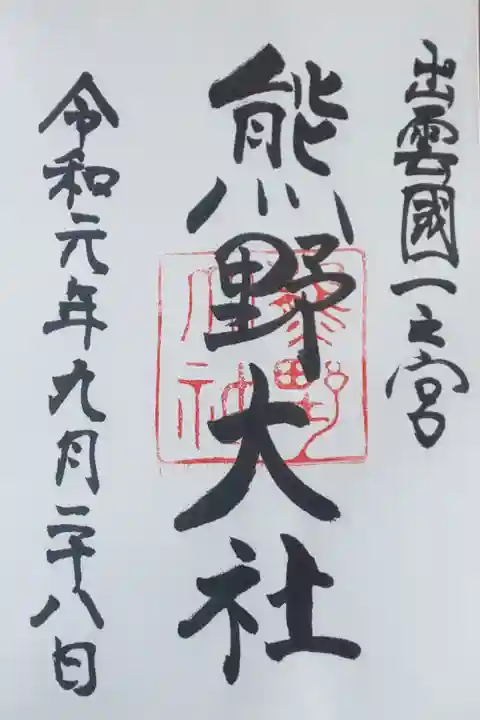 出雲國一之宮
熊野大社
令和元年九月二十八日
熊野大社